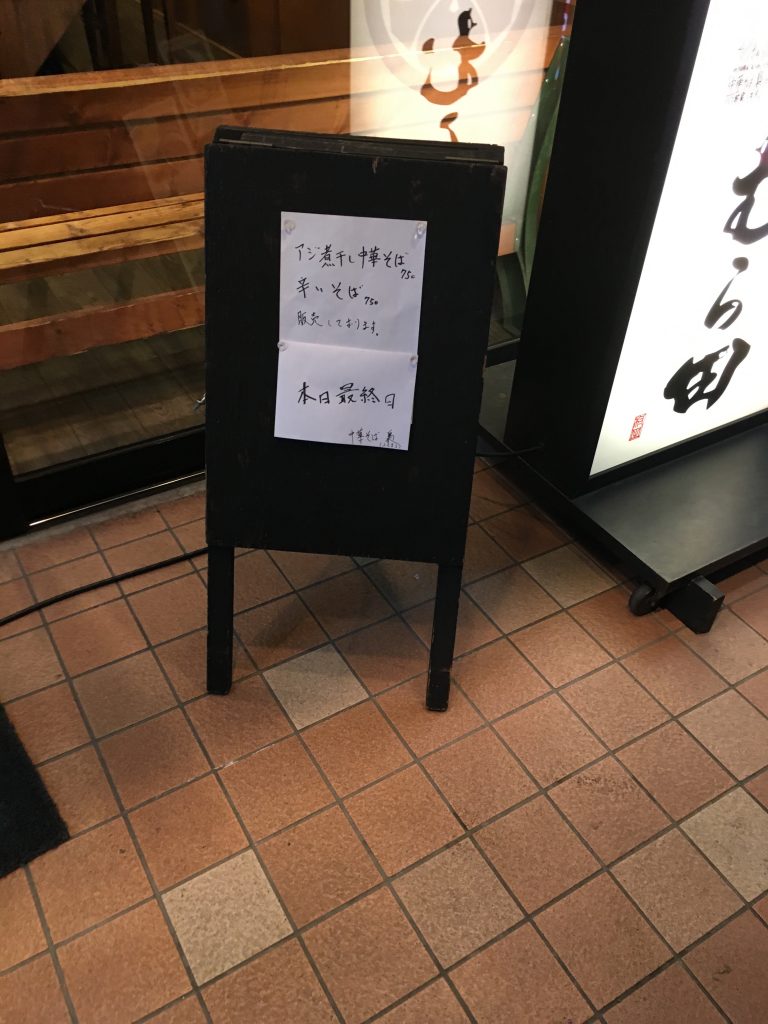 アジ煮干し中華そば 750
辛いそば 750
販売しております。
本日最終日
中華そば
むら田